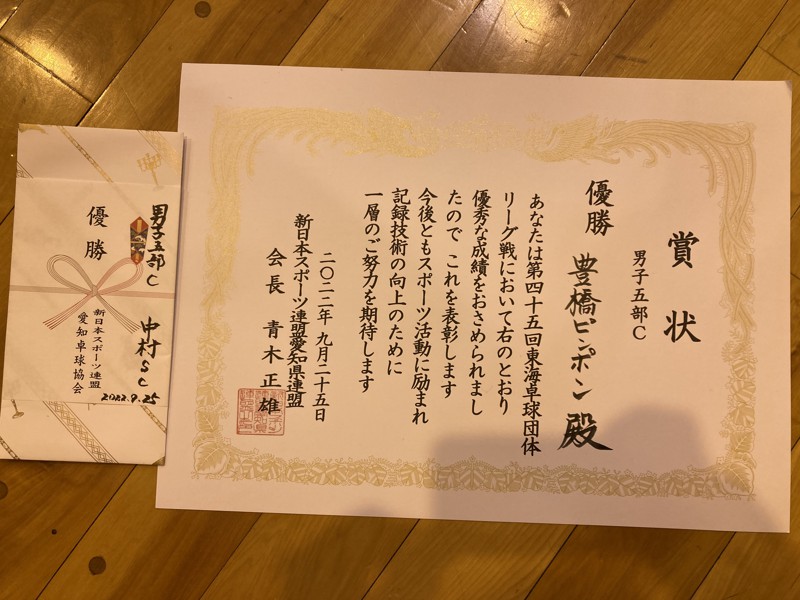 賞状
男子五部C
優勝 豊橋ピンポン 殿
あなたは第四十五回東海卓球団体
リーグ戦において右のとおり
優秀な成績をおさめられまし
たので これを表彰します
今後ともスポーツ活動に励まれ
記録技術の向上のために
一層のご努力を期待します
二〇二二年 九月二十五日
新日本スポーツ連盟愛知県連盟
会長 青木 正雄
男子五部C 中村SC
優勝
新日本スポーツ連盟
愛知卓球協会
2022.9.25